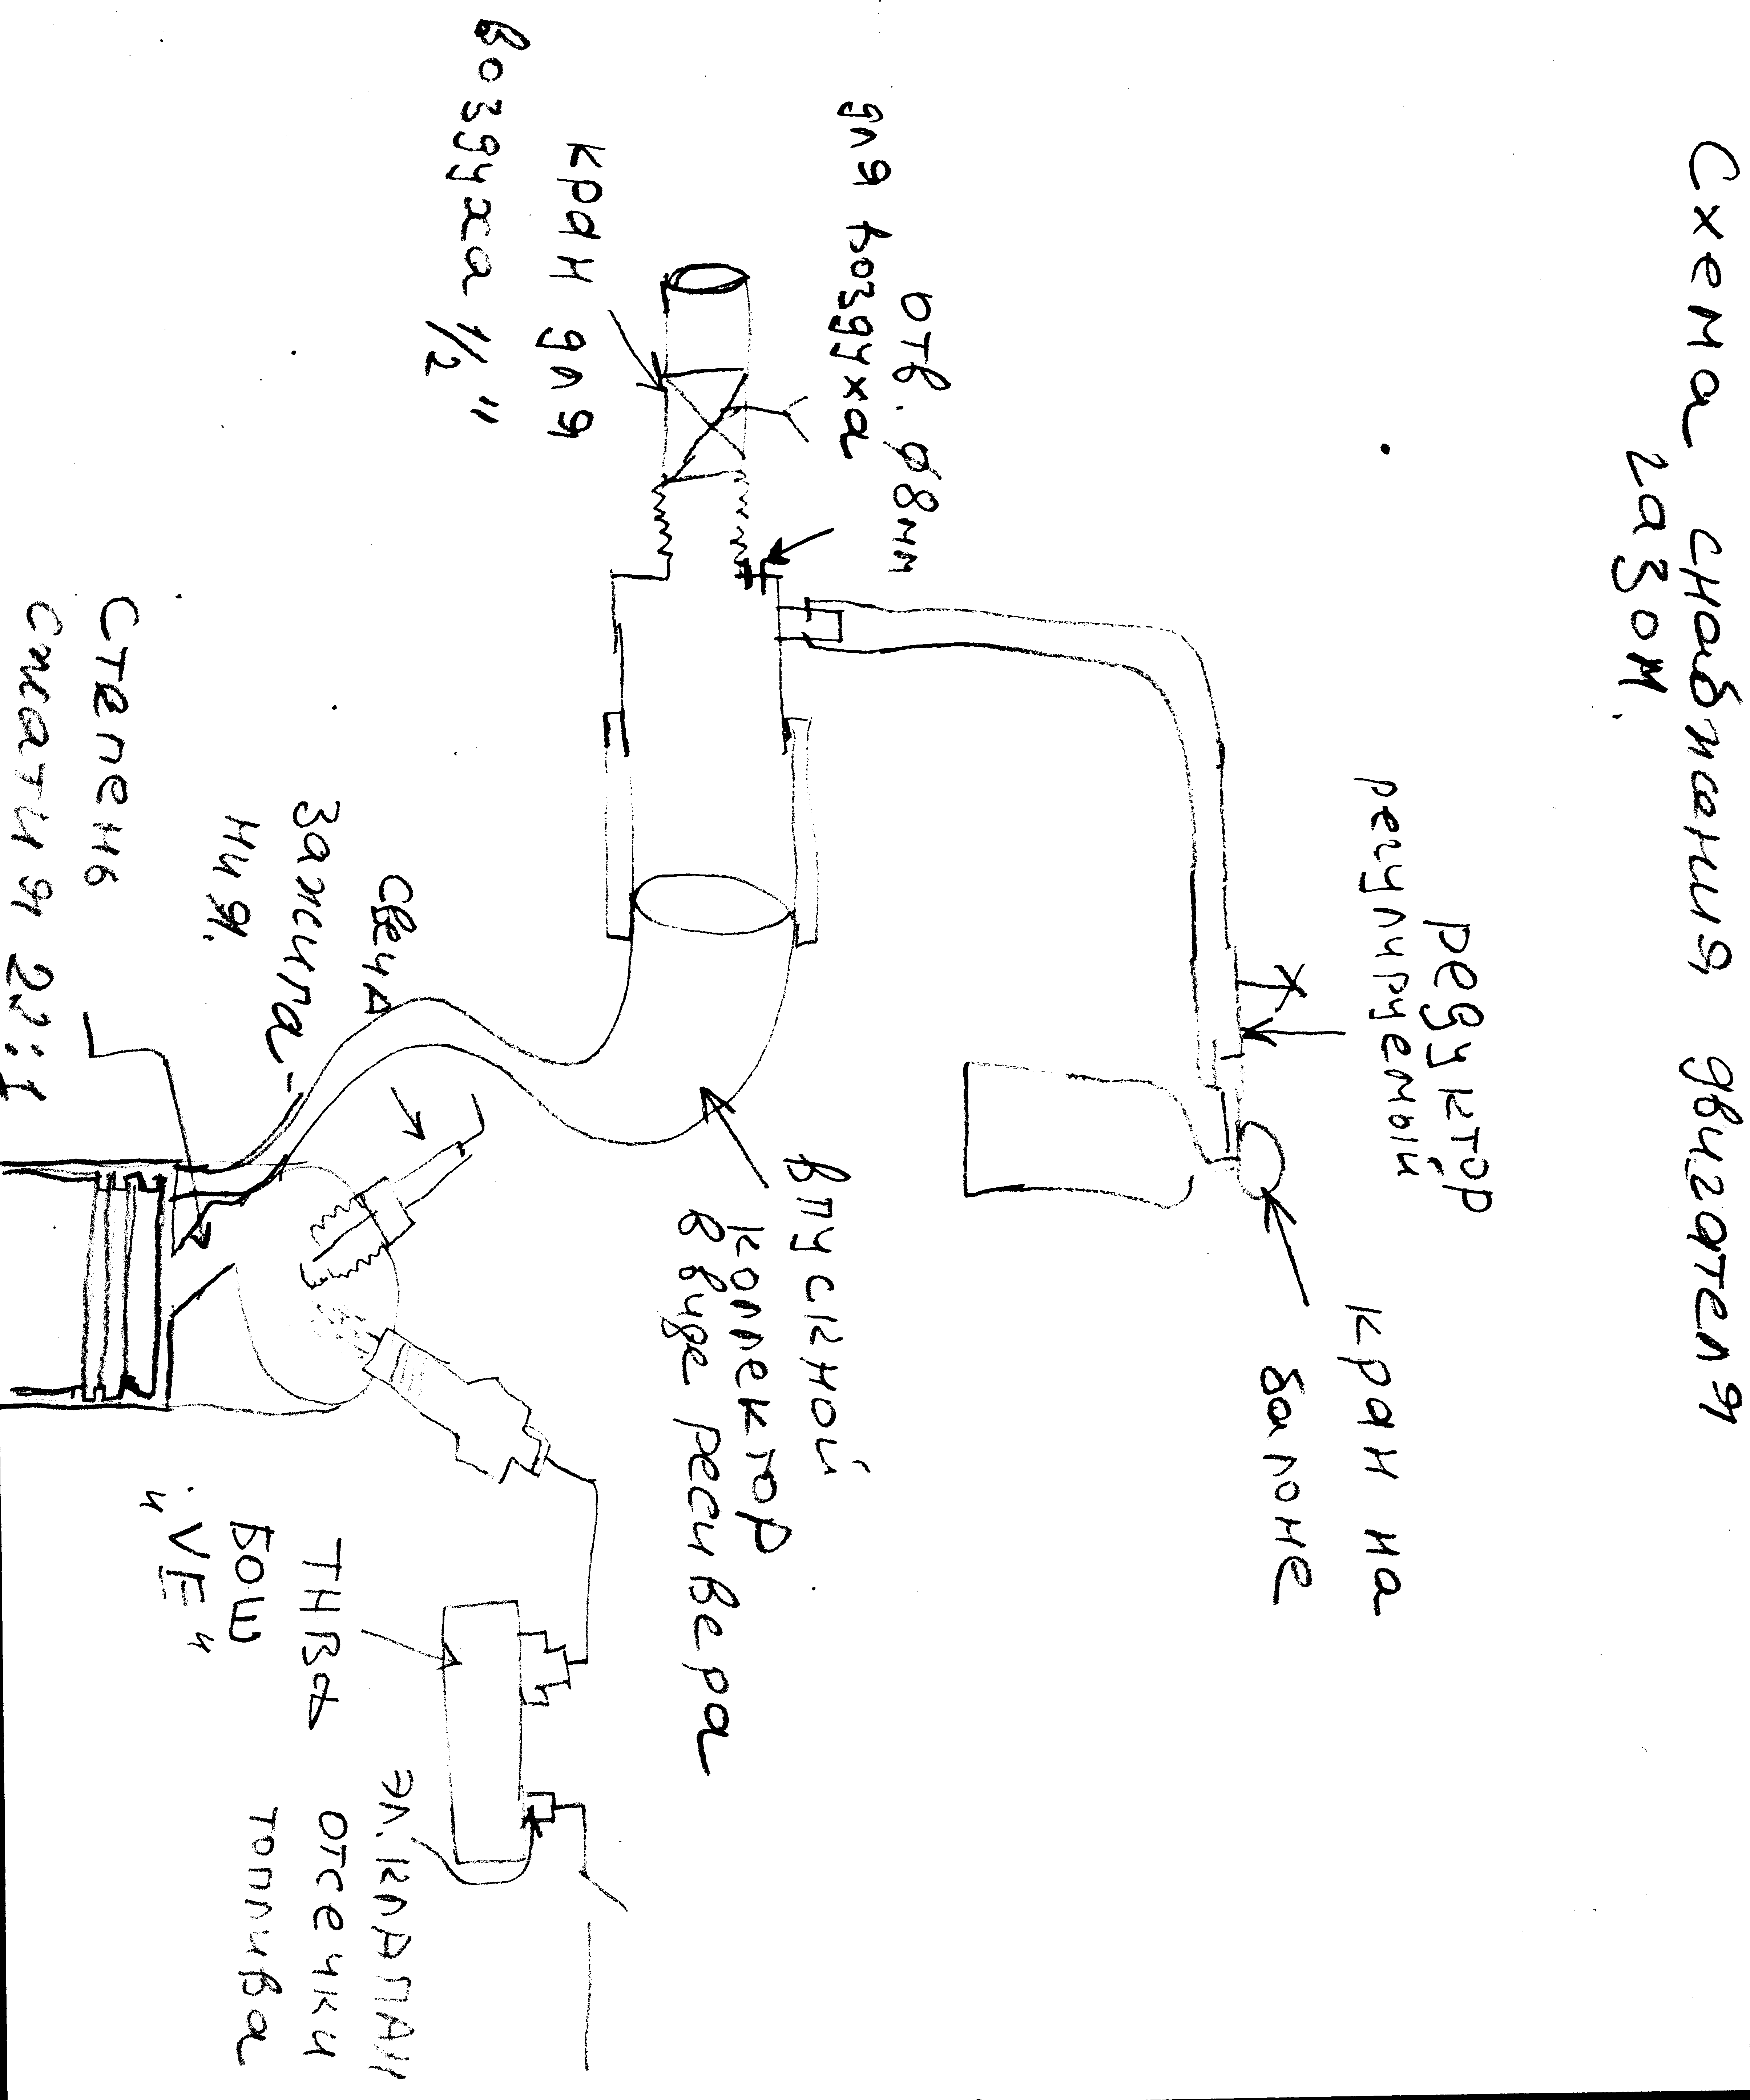 Схема снабжения двигателя
газом.
редуктор
регулируемый
кран на
балоне
отв. ⌀8мм
для воздуха
кран для
воздуха 1/2"
впускной
коллектор
в виде ресивера
свеча
зажига-
ния.
Степень
сжатия 22:1
ТНВД
БОШ
"VE"
эл. клапан
отсечки
топлива